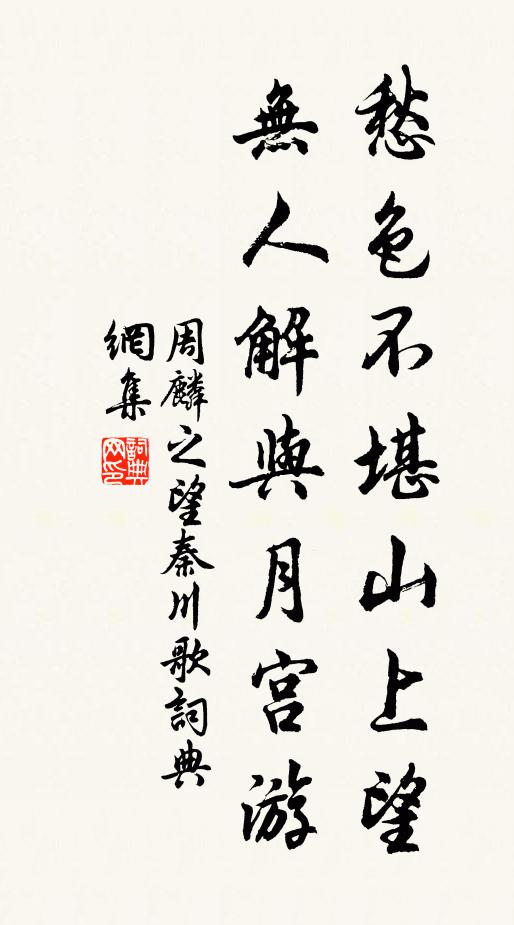 愁色不堪山上望
無人解與月宫游
周麟之望秦川歌詞典
網集
詞典
网印